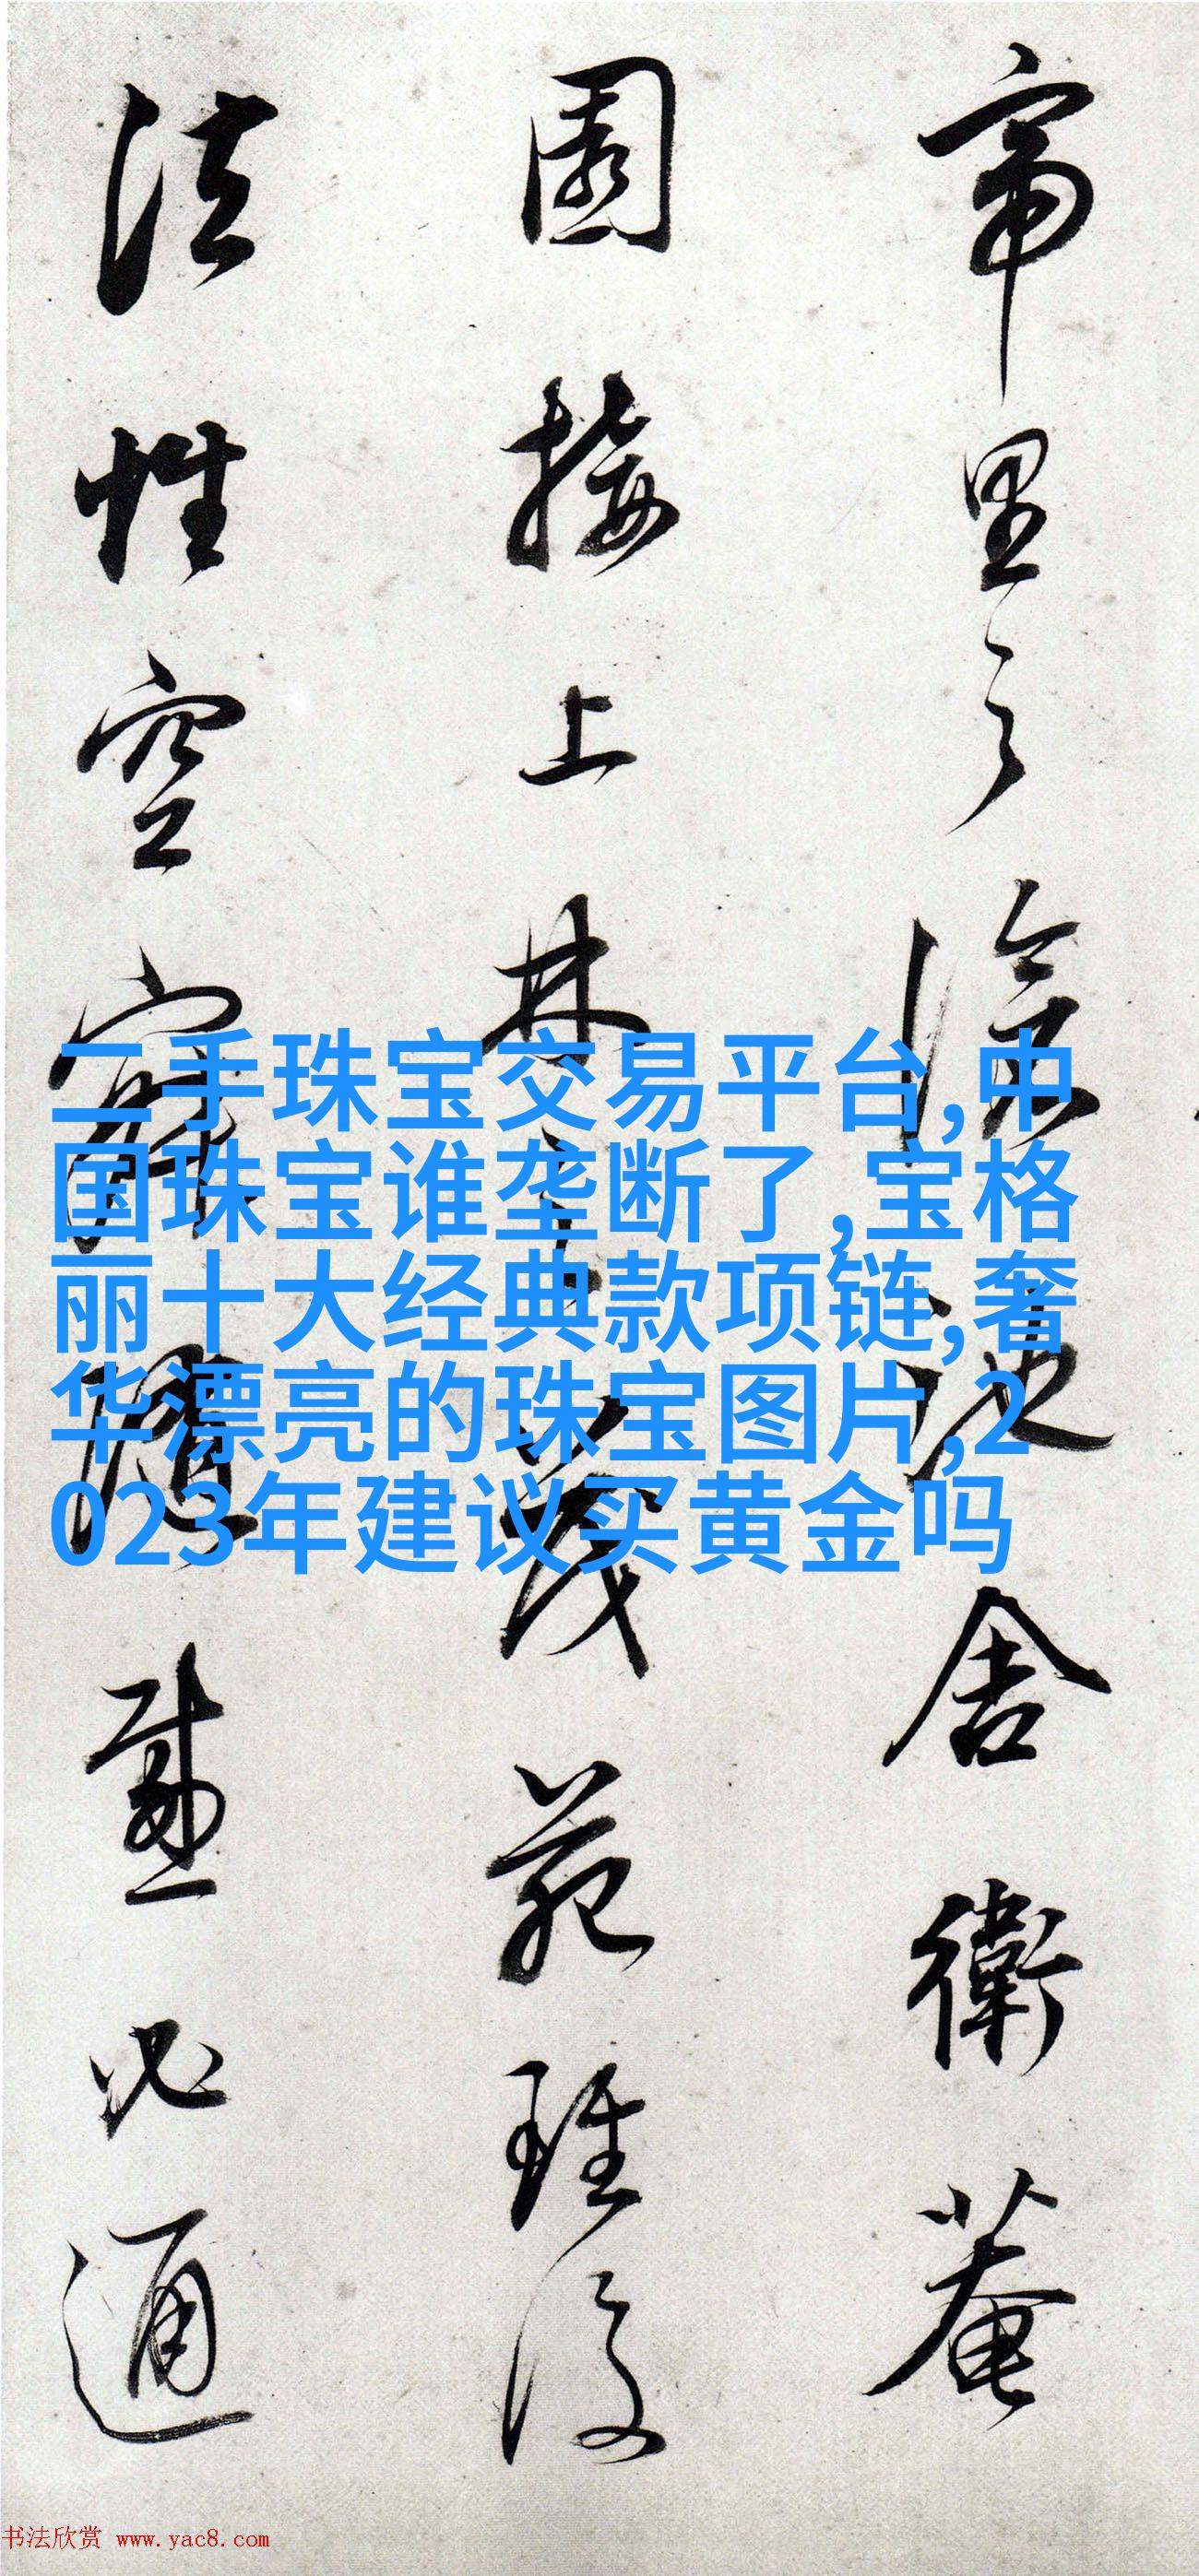 帝里之池舍衛菴
園接上林之茂苑雖復
法性空寂隨感必通
二手珠宝交易平台,中
国珠宝谁垄断了,宝格
丽十大经典款项链,奢
华漂亮的珠宝图片,2
023年建议买黄金吗
书法欣赏 www.yac8.com